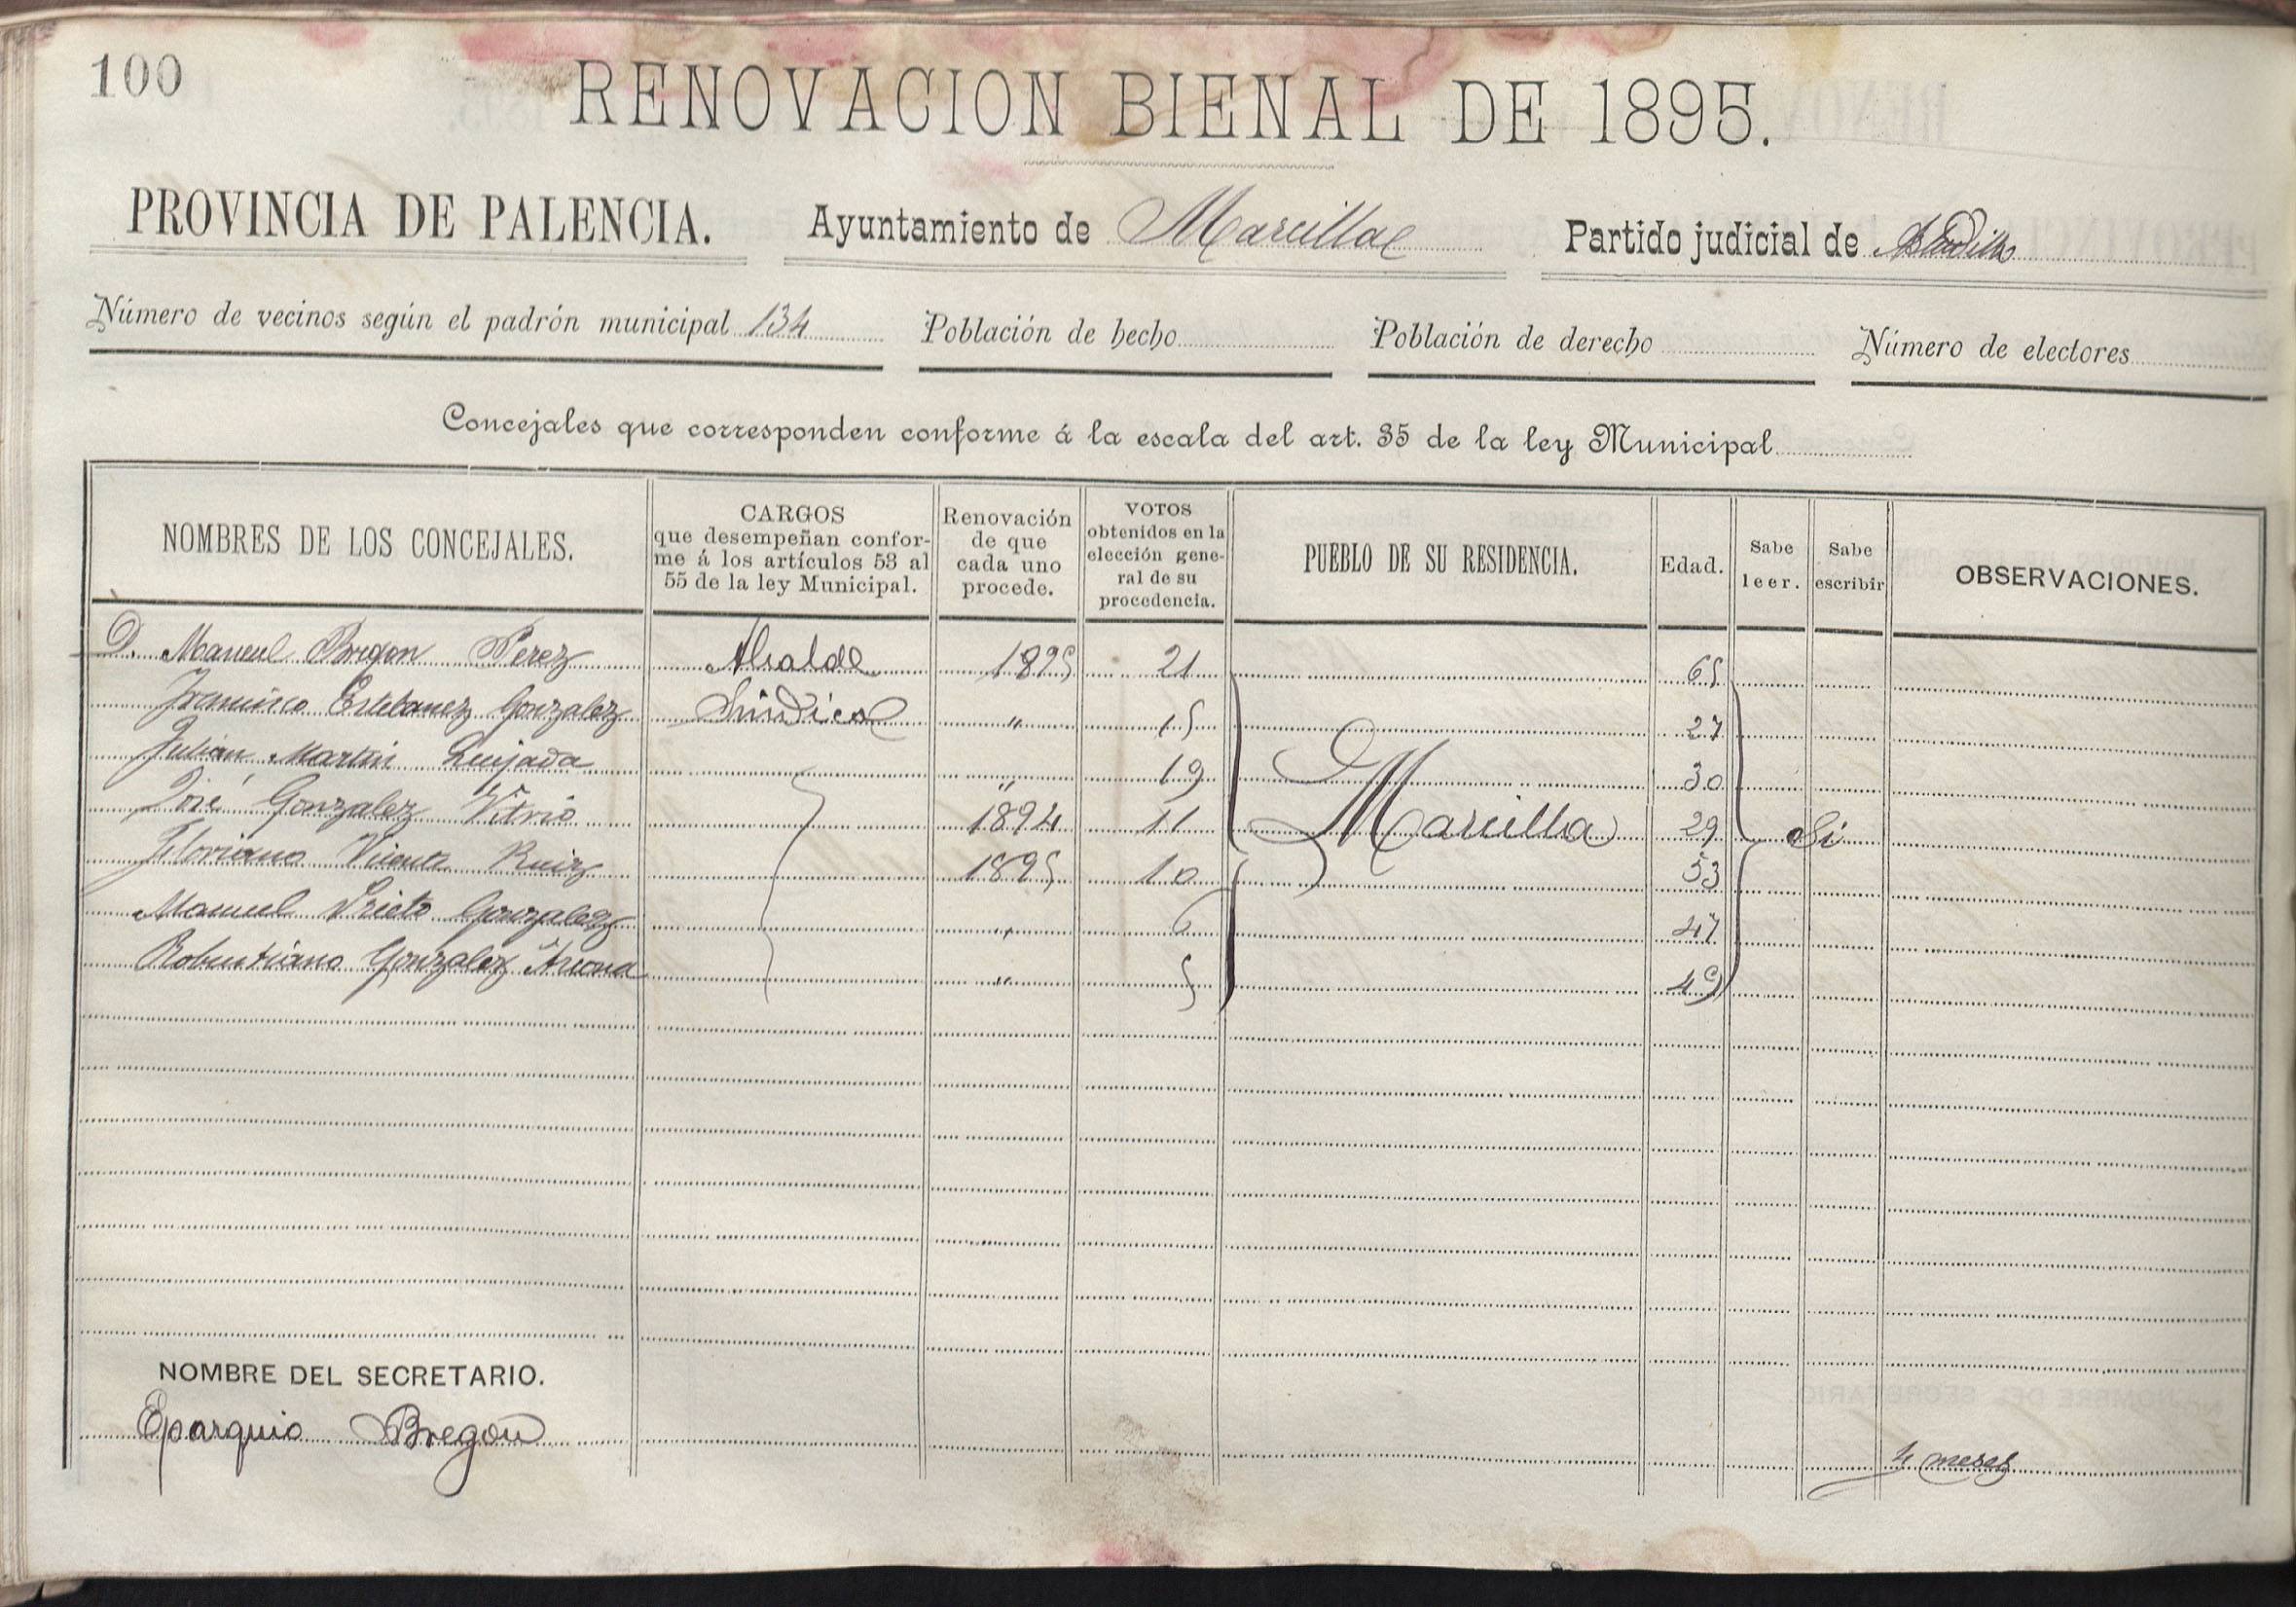 100
RENOVACION BIENAL DE 1895.
PROVINCIA DE PALENCIA. Ayuntamiento de Marcilla Partido judicial de Astudillo
Número de vecinos según el padrón municipal 134 Población de hecho Población de derecho Número de electores
Concejales que corresponden conforme á la escala del art. 35 de la ley Municipal
NOMBRES DE LOS CONCEJALES. CARGOS que desempeñan conforme á los artículos 53 al 55 de la ley Municipal. Renovación de que cada uno procede. VOTOS obtenidos en la elección general de su procedencia. PUEBLO DE SU RESIDENCIA. Edad. Sabe leer. Sabe escribir OBSERVACIONES.
D. Manuel Bregon Perez Alcalde 1895 21 65
Francisco Estebanez Gonzalez Sindico " 15 27
Julián Martin Quijada " 19 30
José Gonzalez 1894 11 Marcilla 29 Si
Floriano Vicente Ruiz 1895 10 53
Manuel Prieto Gonzalez " 6 47
Robustiano Gonzalez " 5 49
NOMBRE DEL SECRETARIO.
Eparquio Bregon
4 meses